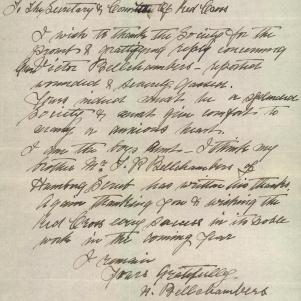 To The Secretary & Committee of Red Cross
I wish to thank the Society for the
prompt & gratifying reply concerning
Victor Bellchambers - reported
wounded &
Yours indeed must be a splendid
Society & must give comfort to
many a anxious heart.
I am the boys Aunt - I think my
brother Mr. J P Bellchambers of
Humbug Scrub has written his thanks.
Again thanking you & wishing the
Red Cross every success in its noble
work in the coming year
I remain
Yours Gratefully
H. Bellchambers